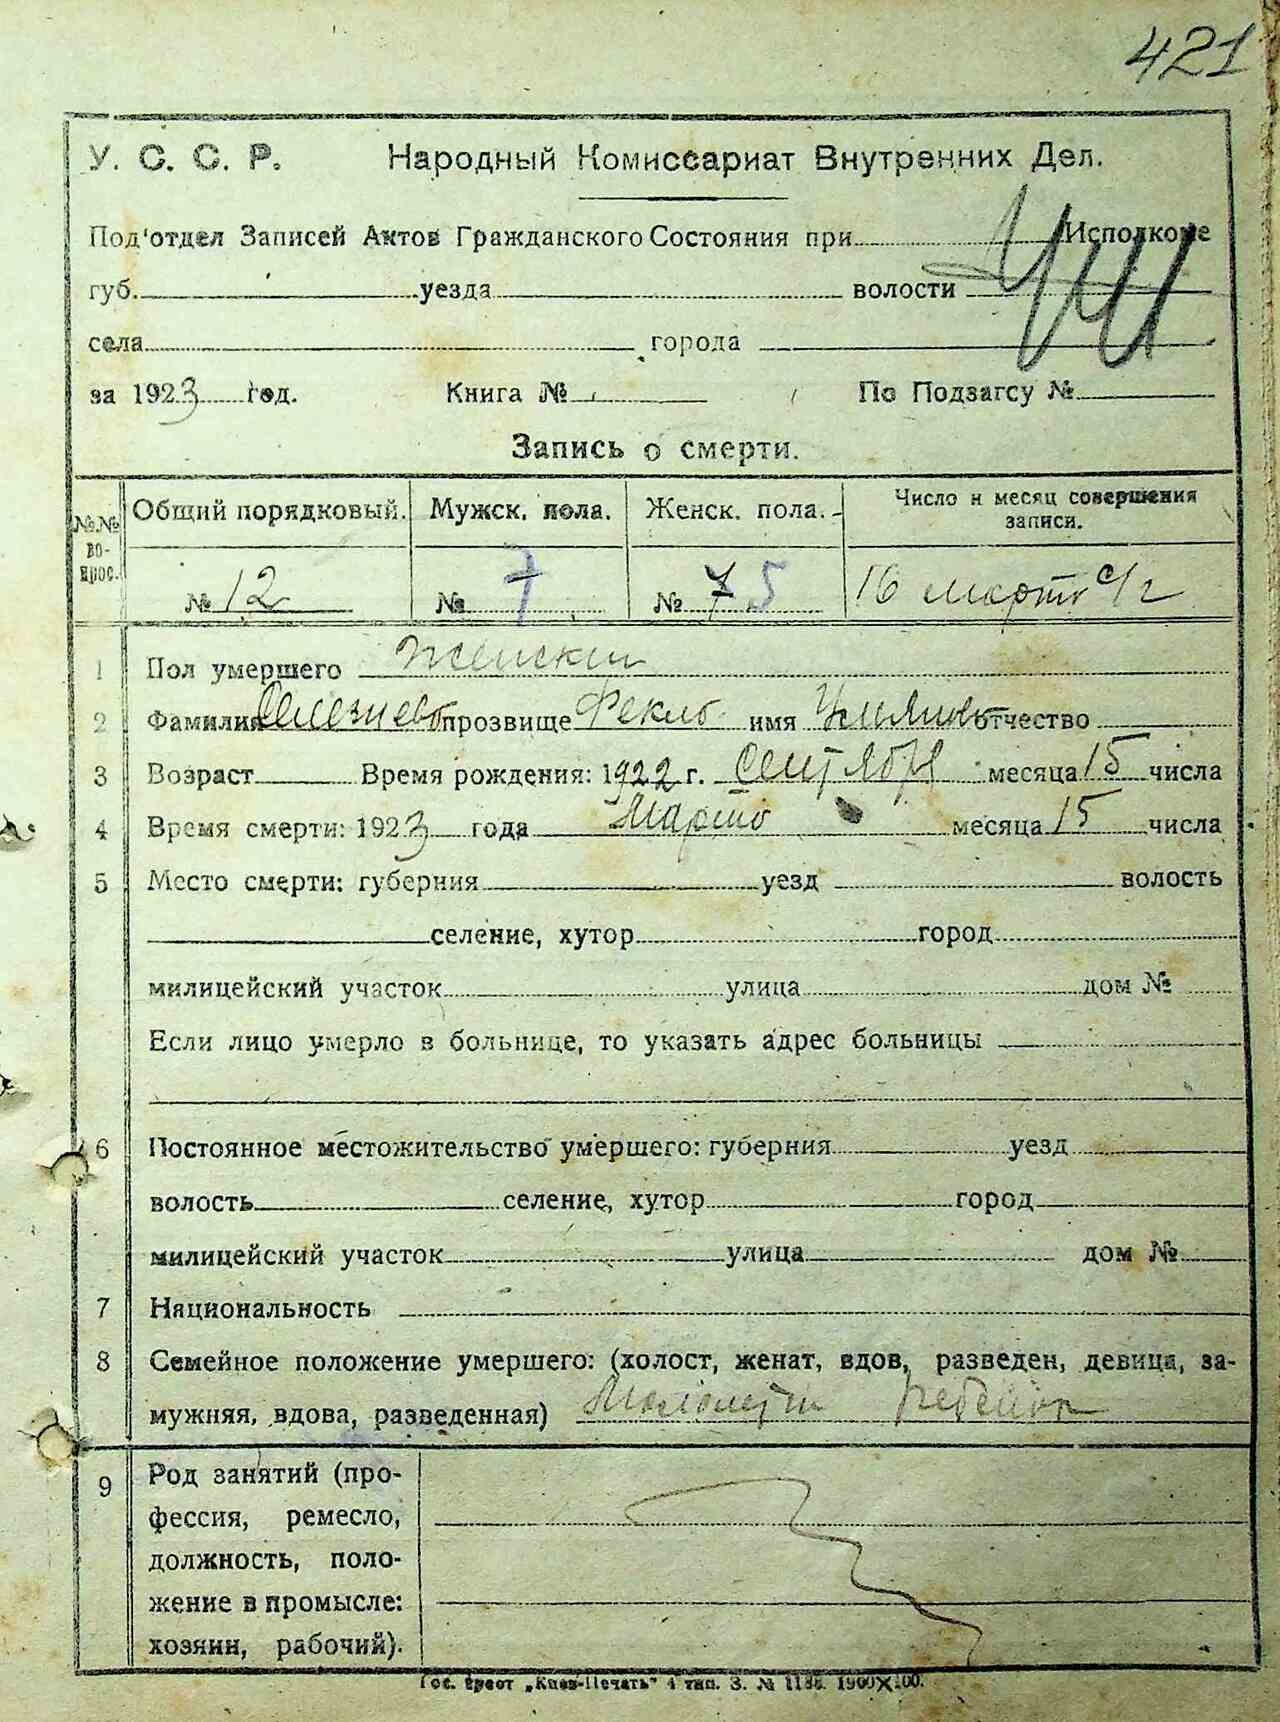 421
У. С. С. Р. Народный Комиссариат Внутренних Дел.
Под'отдел Записей Актов Гражданского Состояния при Исполкоме
губ. уезда волости
села города
за 1923 год. Книга № По Подзагсу №
Запись о смерти.
№№ во-прос. Общий порядковый. Мужск. пола. Женск. пола. Число и месяц совершения записи.
№ 12 № 7 № 7 5 16 марта с/г
1 Пол умершего Женский
2 Фамилия Селезнево прозвище Фекла имя отчество
3 Возраст Время рождения: 1922 г. Сентября месяца 15 числа
4 Время смерти: 1923 года Марта месяца 15 числа
5 Место смерти: губерния уезд волость
селение, хутор город
милицейский участок улица дом №
Если лицо умерло в больнице, то указать адрес больницы
6 Постоянное местожительство умершего: губерния уезд
волость селение, хутор город
милицейский участок улица дом №
7 Национальность
8 Семейное положение умершего: (холост, женат, вдов, разведен, девица, за-
мужняя, вдова, разведенная) ребенок
9 Род занятий (про-
фессия, ремесло,
должность, поло-
жение в промысле:
хозяин, рабочий).
Гос. трест „Киев-Печать" 4 тип. З. № 1186. 1900×100.